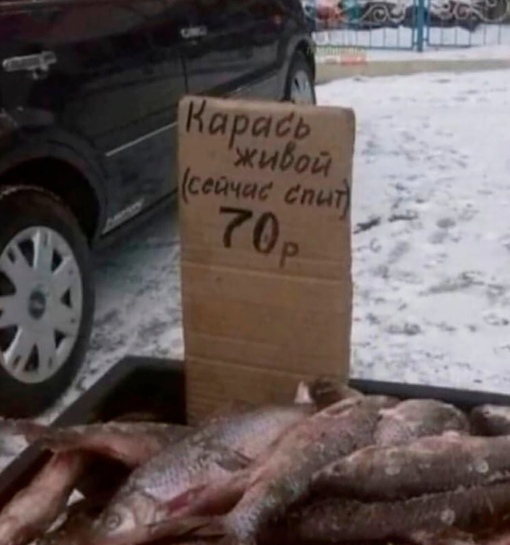 Карась
живой
(сейчас спит)
70р